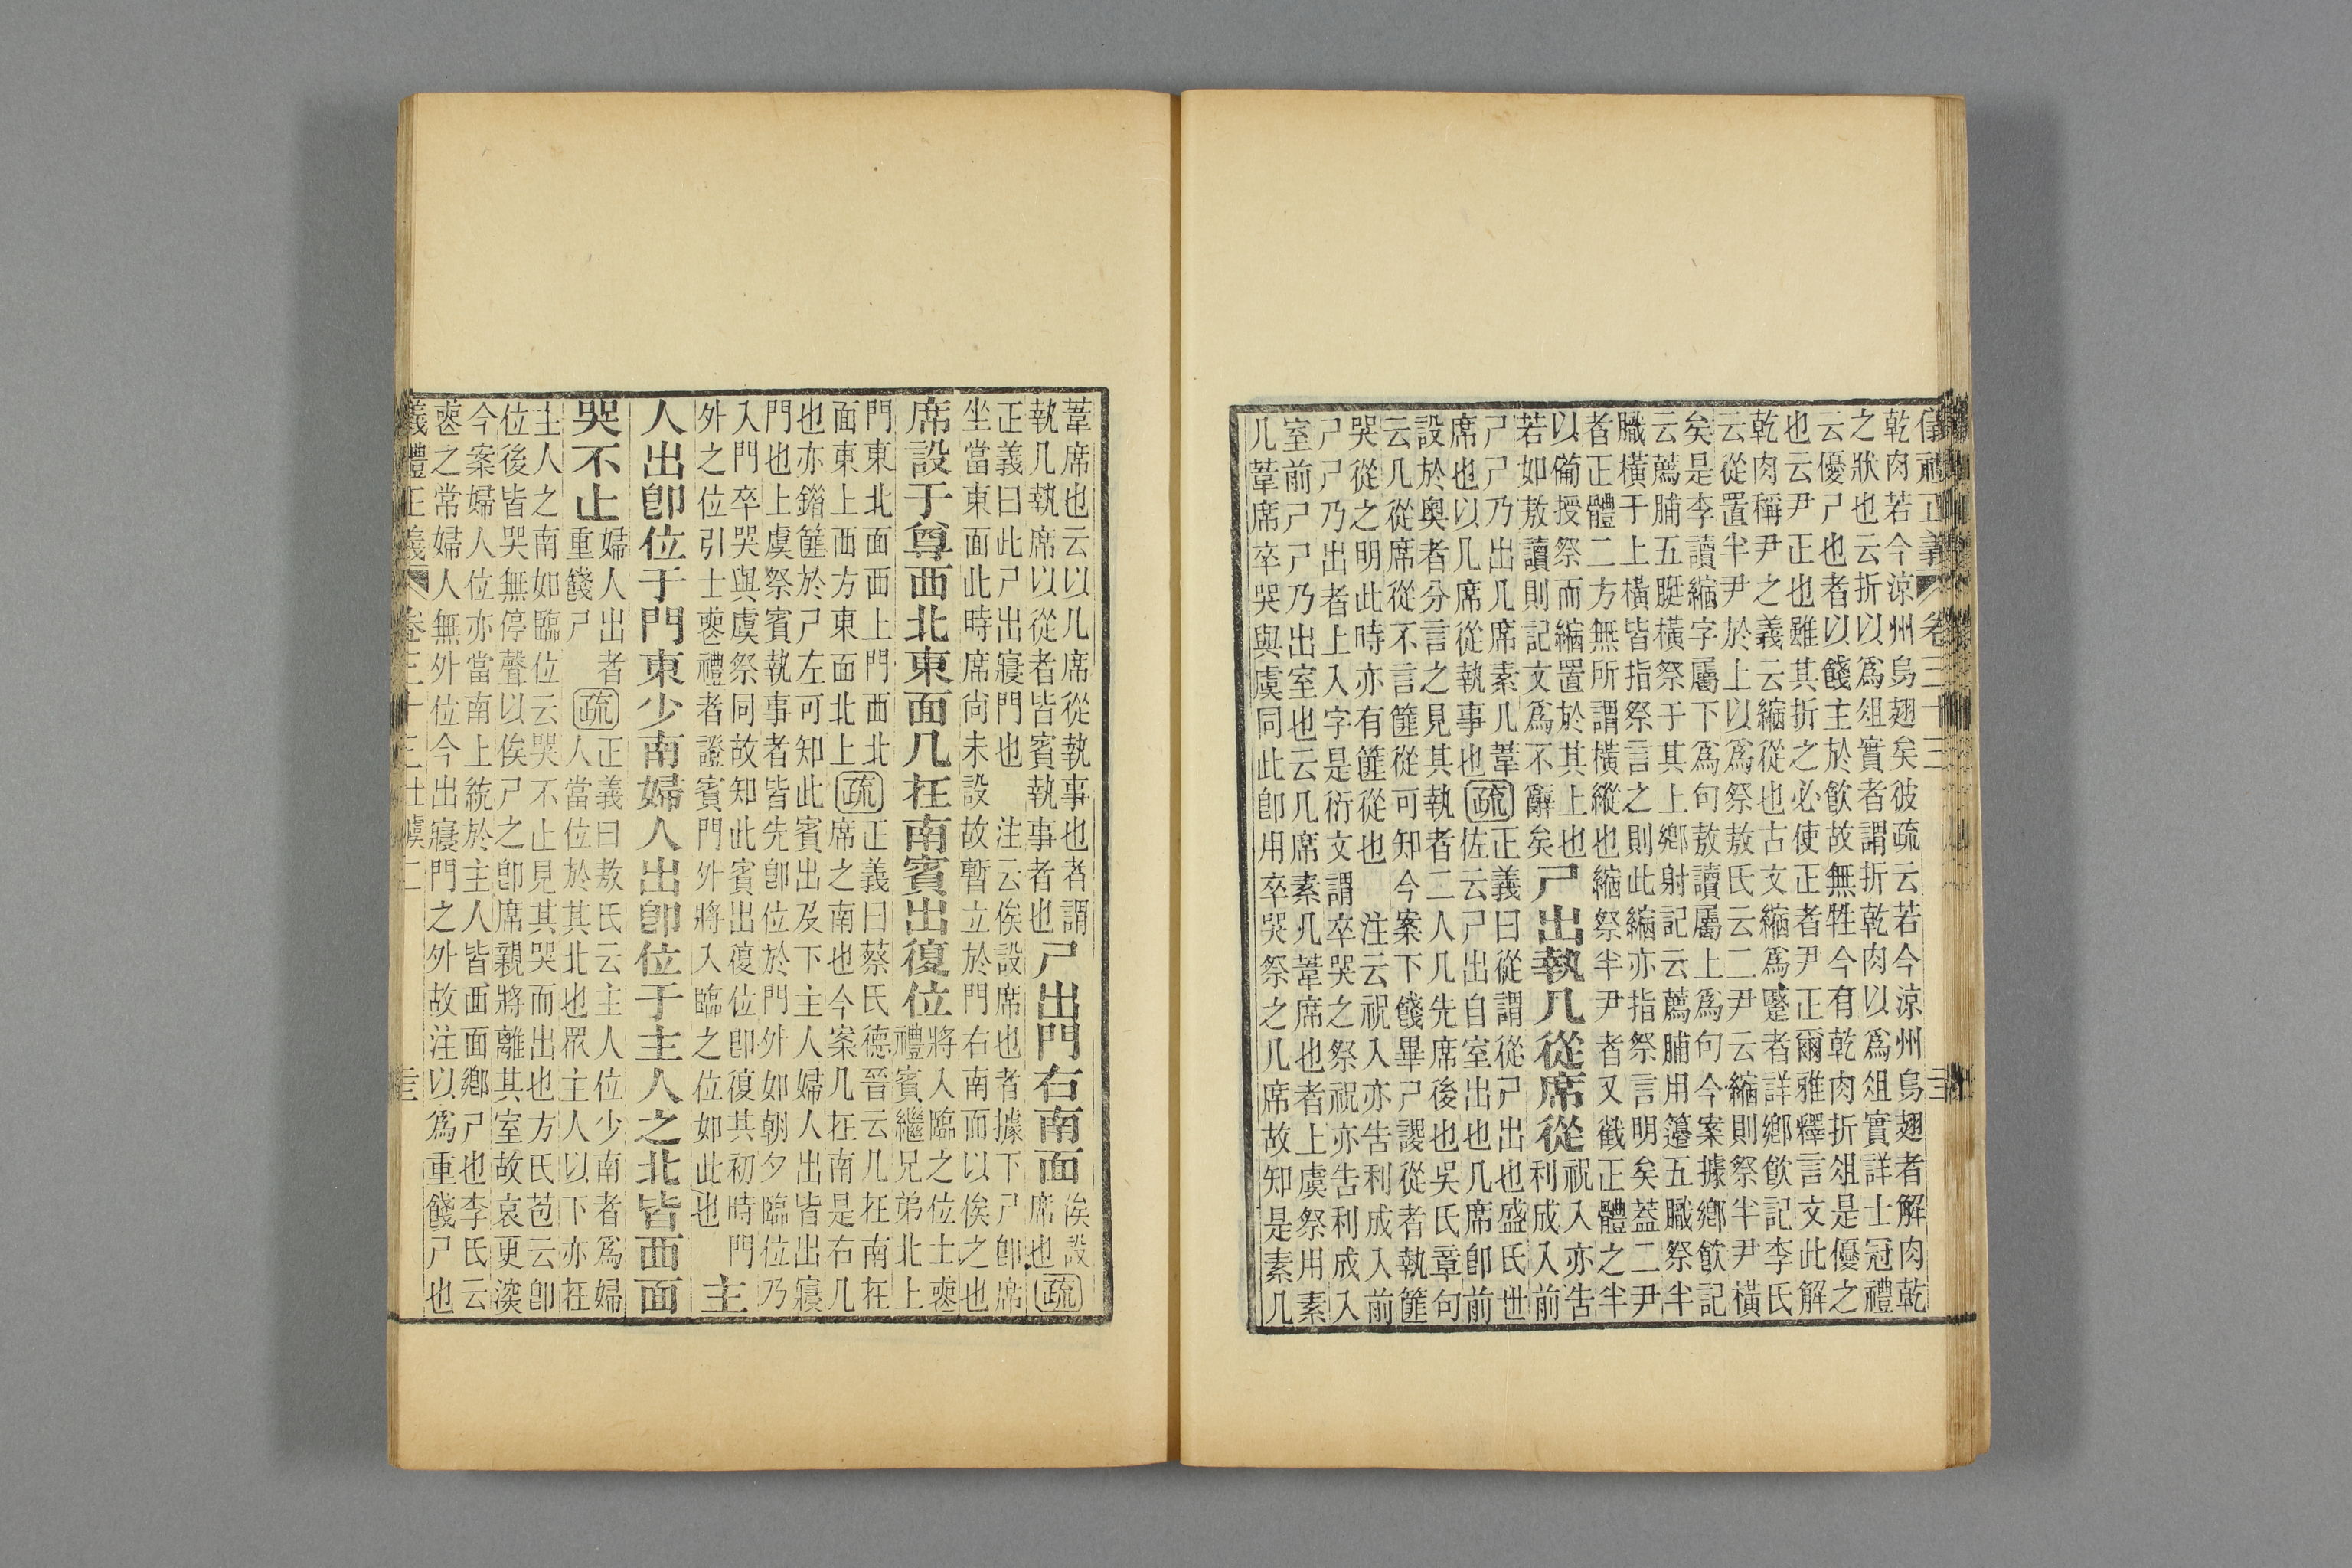 儀禮正義 卷三十三
乾肉若今涼州烏翅矣彼疏云若今涼州烏翅者解肉乾
之狀也云折以爲俎實者謂折乾肉以爲俎實詳士冠禮
云優尸也者以餞主於飮故無牲今有乾肉折俎是優之
也云尹正也雖其折之必使正者尹正爾雅釋言文此解
乾肉稱尹之義云縮從也古文縮爲蹙者詳鄉飮記李氏
云從置半尹於上以爲祭敖氏云二尹云縮則祭半尹橫
矣是李讀縮字屬下爲句敖讀屬上爲句今案據鄉飮記
云薦脯五脡橫祭于其上鄉射記云薦脯用籩五膱祭半
膱橫于上橫皆指祭言之則此縮亦指祭言明矣蓋二尹
者正體二方無所謂橫縱也縮祭半尹者又截正體之半
以備授祭而縮置於其上也
若如敖讀則記文爲不辭矣
尸出執几從席從
祝入亦告
利成入前
尸尸乃出几席素几葦
席也以几席從執事也
疏
正義曰從謂從尸出也盛氏世
佐云尸出自室出也几席卽前
設於奧者分言之見其執者二人几先席後也吳氏章句
云几從席從不言篚從可知今案下餞畢尸謖從者執篚
哭從之明此時亦有篚從也 注云祝入亦告利成入前
尸尸乃出者上入字是衍文謂卒哭之祭祝亦告利成入
室前尸尸乃出室也云几席素几葦席也者上虞祭用素
几葦席卒哭與虞同此卽用卒哭祭之几席故知是素几
葦席也云以几席從執事也者謂
執几執席以從者皆賓執事者也
尸出門右南面
俟設
席也
疏
正義曰此尸出寢門也 注云俟設席也者據下尸卽席
坐當東面此時席尙未設故暫立於門右南面以俟之也
席設于尊西北東面几在南賓出復位
將入臨之位士喪
禮賓繼兄弟北上
門東北面西上門西北
面東上西方東面北上
疏
正義曰蔡氏德晉云几在南在
席之南也今案几在南是右几
也亦錯篚於尸左可知此賓出及下主人婦人出皆出寢
門也上虞祭賓執事者皆先卽位於門外如朝夕臨位乃
入門卒哭與虞祭同故知此賓出復位卽復其初時門
外之位引士喪禮者證賓門外將入臨之位如此也
主
人出卽位于門東少南婦人出卽位于主人之北皆西面
哭不止
婦人出者
重餞尸
疏
正義曰敖氏云主人位少南者爲婦
人當位於其北也眾主人以下亦在
主人之南如臨位云哭不止見其哭而出也方氏苞云卽
位後皆哭無停聲以俟尸之卽席親將離其室故哀更深
今案婦人位亦當南上統於主人皆西面鄉尸也李氏云
喪之常婦人無外位今出寢門之外故注以爲重餞尸也
義禮正義 卷三十三士虞二